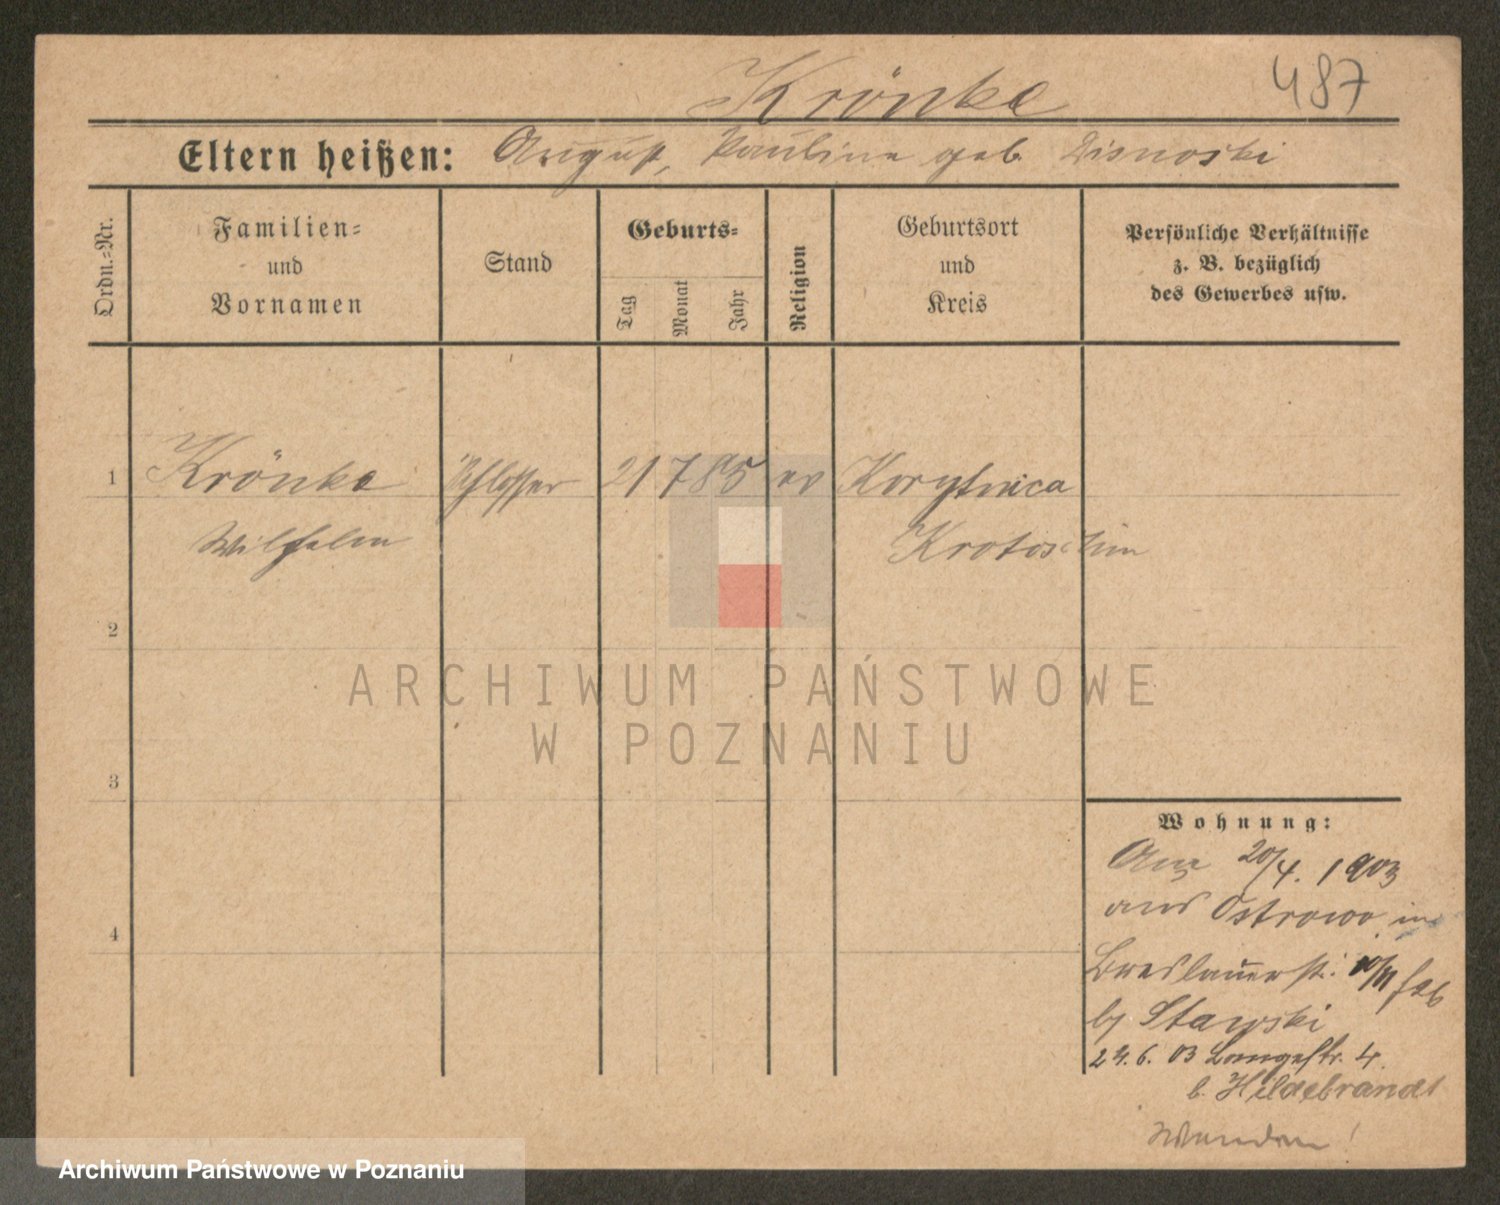 Krönke 487
Eltern heißen: August, Pauline geb. Disnoski
Ordn.-Nr.
Familien-
und
Vornamen
Stand
Geburts-
Tag
Monat
Jahr
Religion
Geburtsort
und
Kreis
Persönliche Verhältnisse
z. B. bezüglich
des Gewerbes usw.
1 Krönke Schlosser 21 7 85 ev Korytnica
Wilhelm Krotoschin
2
3
4
ARCHIWUM PAŃSTWOWE
W POZNANIU
Wohnung:
20/4. 1903
aus Ostrowo in
Breslauerstr. 10/11
by Stawski
24.6.03 Langestr. 4.
b. Hildebrandt
Wenden!
Archiwum Państwowe w Poznaniu